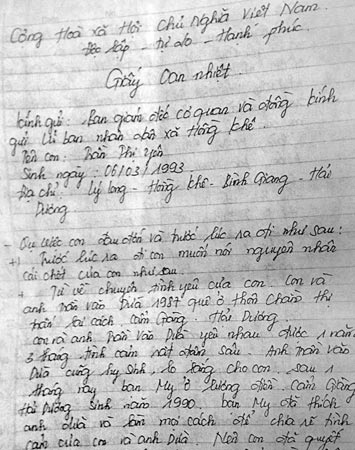 Công Hoà xã Hội Chủ nghĩa Việt Nam.
Độc lập - tự do - Hạnh phúc.
Giấy Oan nhiệt.
kính gửi: ban giám đốc cơ quan và đồng kính
gửi Uỷ ban nhân dân xã Hồng khê.
Tên con: Trần Thị Yên
Sinh ngày: 06/03/1993
Địa chỉ: Lý long - Hồng khê - Bình Giang - Hải
Dương
con đau đớn và trước lúc ra đi như sau:
+) Trước lúc ra đi con muốn nói nguyên nhân
cái chết của con như sau
+ Tư về chuyện tình yêu của con. Con và
anh trần văn Duà 1987 quê ở thôn
trấn lai cách Cẩm Giàng. Hải Dương.
con và anh Trần Văn Duà yêu nhau được 1 năm
3 tháng tình cảm rất đậm sâu. Anh trần văn
Duà cũng hy sinh lo lắng cho con. sau 1
tháng nay bạn My ở lương điền Cẩm Giàng
Hải Dương sinh năm 1990. bạn My đã thích
anh duà và làm mọi cách để chia rẽ tình
cảm của con và anh Duà. Nên con đã quyết